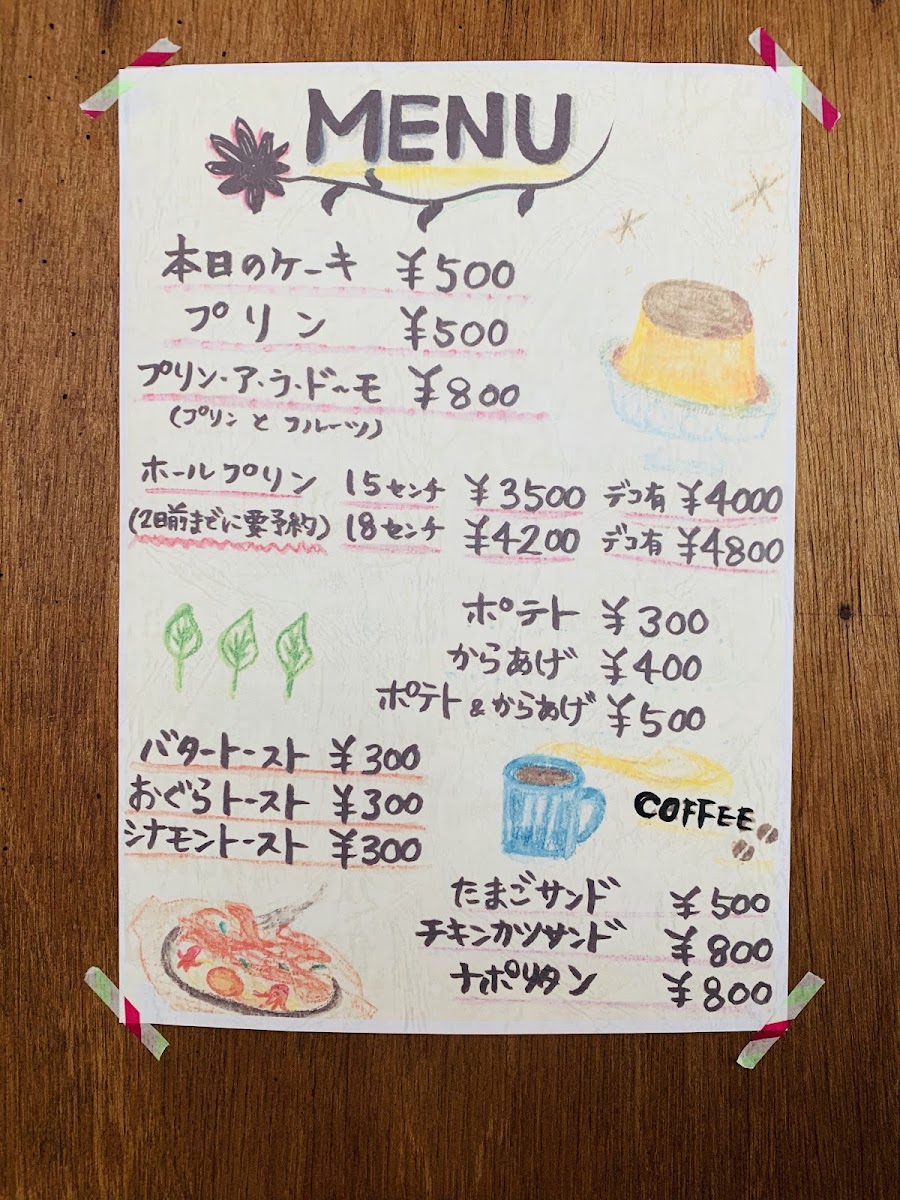 MENU
本日のケーキ ¥500
プリン ¥500
プリン・ア・ラ・ド〜モ ¥800
(プリンとフルーツ)
ホールプリン 15センチ ¥3500 デコ有 ¥4000
(2日前までに要予約) 18センチ ¥4200 デコ有 ¥4800
ポテト ¥300
からあげ ¥400
ポテト&からあげ ¥500
バタートースト ¥300
おぐらトースト ¥300
シナモントースト ¥300
COFFEE
たまごサンド ¥500
チキンカツサンド ¥800
ナポリタン ¥800